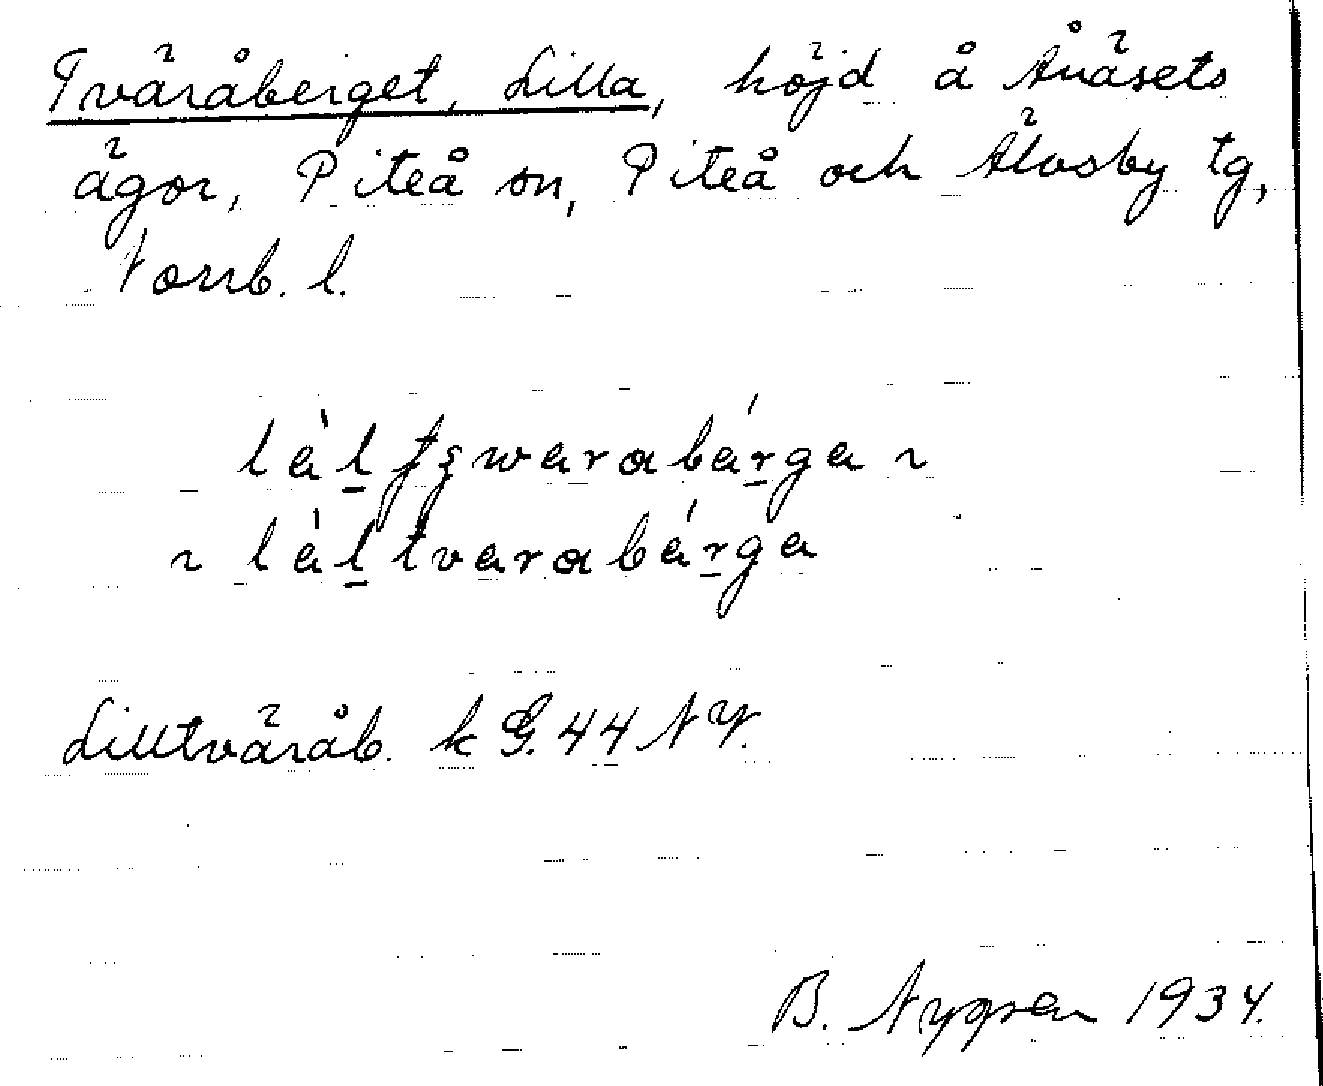 Tväråberget, Lilla, höjd å Ånäsets
ägor, Piteå sn, Piteå och Älvsby tg,
Norrb. l.
làl ʄʂwarabárga ~
~ làl tvarabárga
Lilltväråb. k G. 44 NV.
B. Nygren 1934.